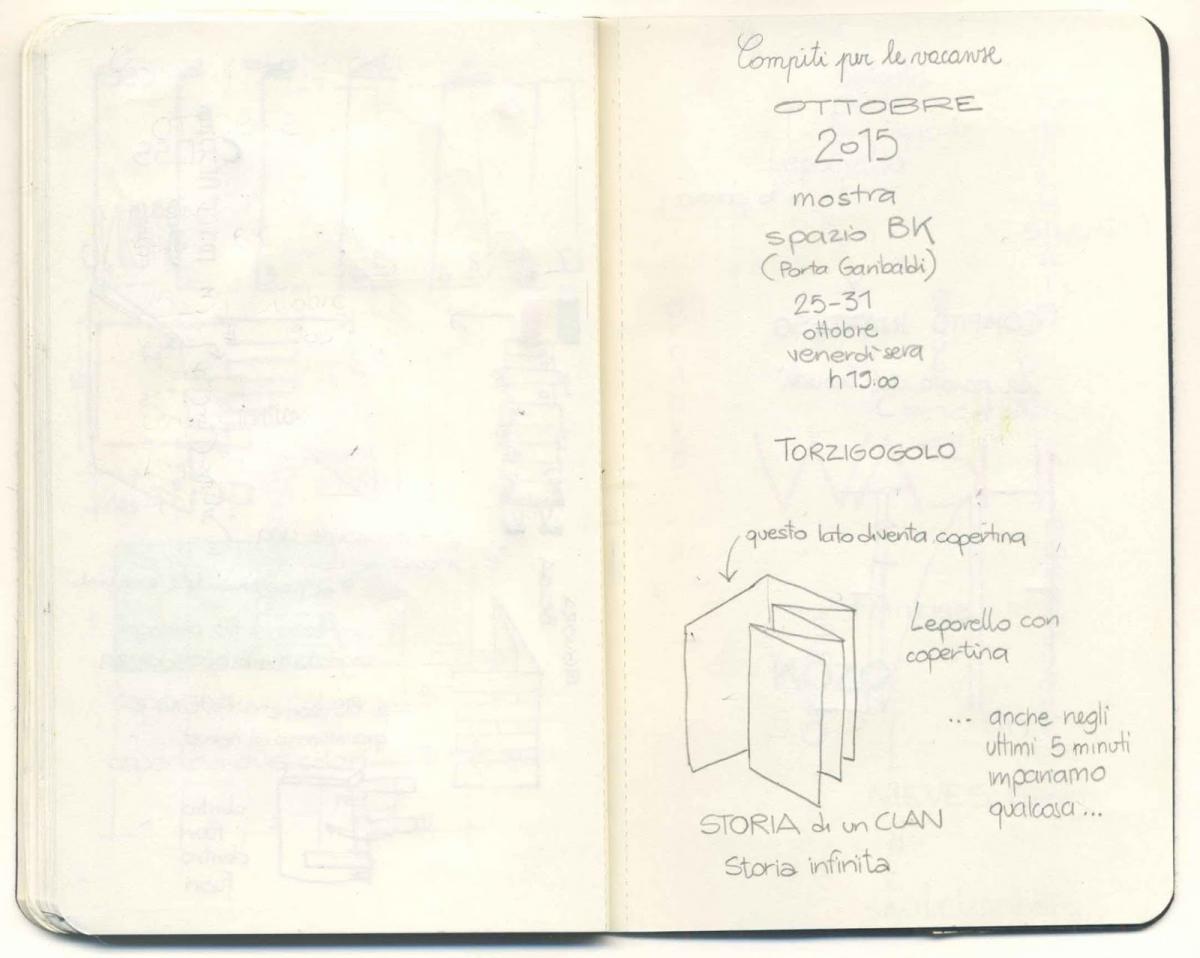 Compiti per le vacanze
OTTOBRE
2015
mostra
spazio BK
(Porta Garibaldi)
25-31
ottobre
venerdì sera
h 19:00
TORZIGOGOLO
questo lato diventa copertina
Leporello con
copertina
... anche negli
ultimi 5 minuti
impariamo
qualcosa...
STORIA di un CLAN
Storia infinita